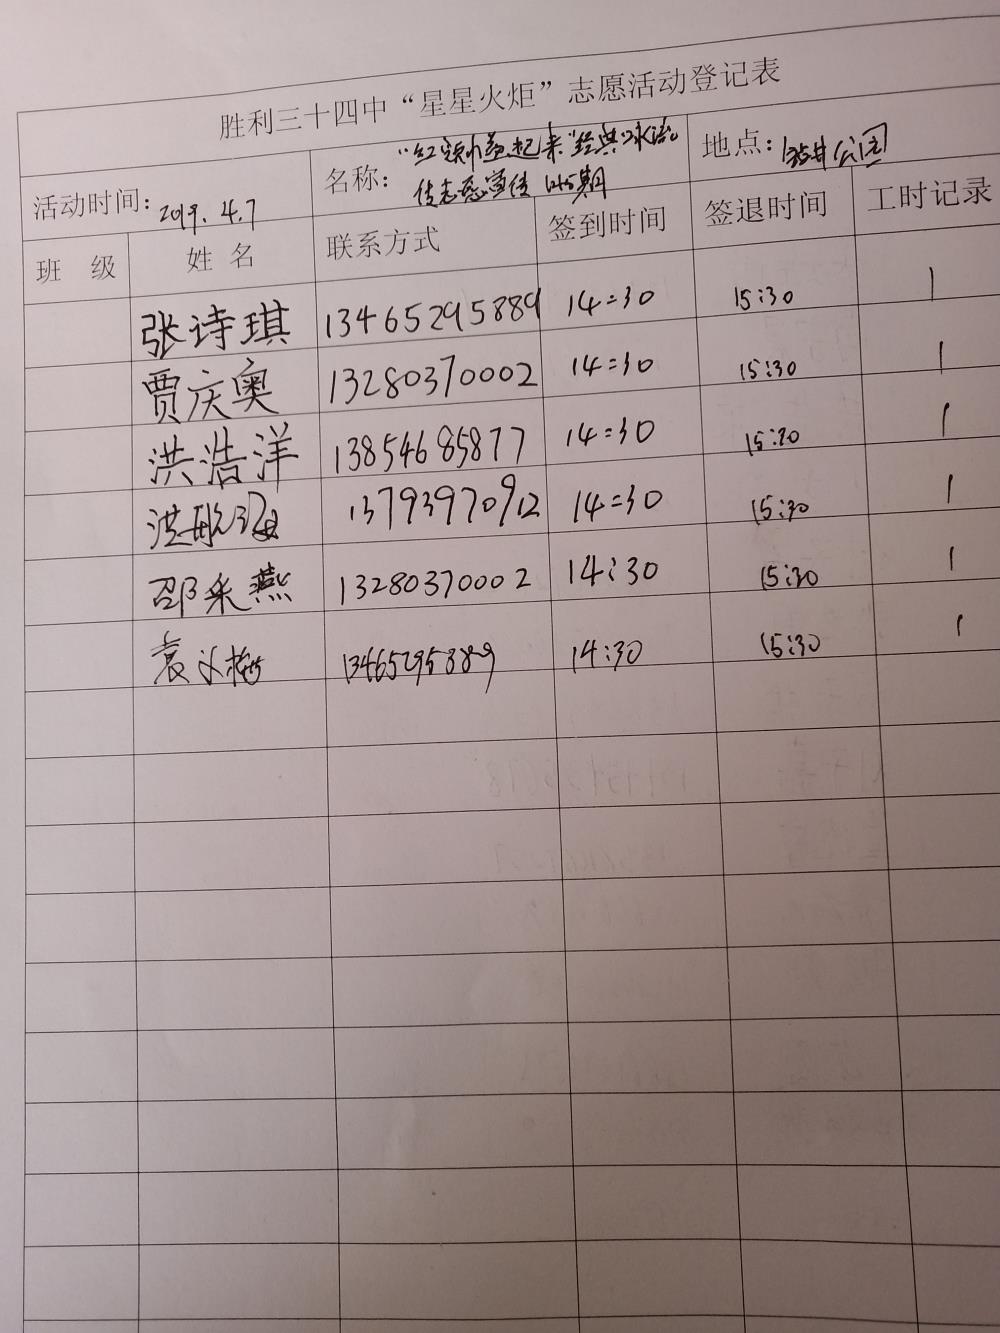 胜利三十四中“星星火炬”志愿活动登记表
活动时间: 2019.4.7 名称: “红领巾 起来”经典 传志愿宣传 期 地点: 公园
班 级 姓 名 联系方式 签到时间 签退时间 工时记录
张诗琪 13465295889 14:30 15:30 1
贾庆奥 13280370002 14:30 15:30 1
洪浩洋 13854685877 14:30 15:30 1
洪 13793970912 14:30 15:30 1
邵采燕 13280370002 14:30 15:30 1
袁 梅 13465295889 14:30 15:30 1